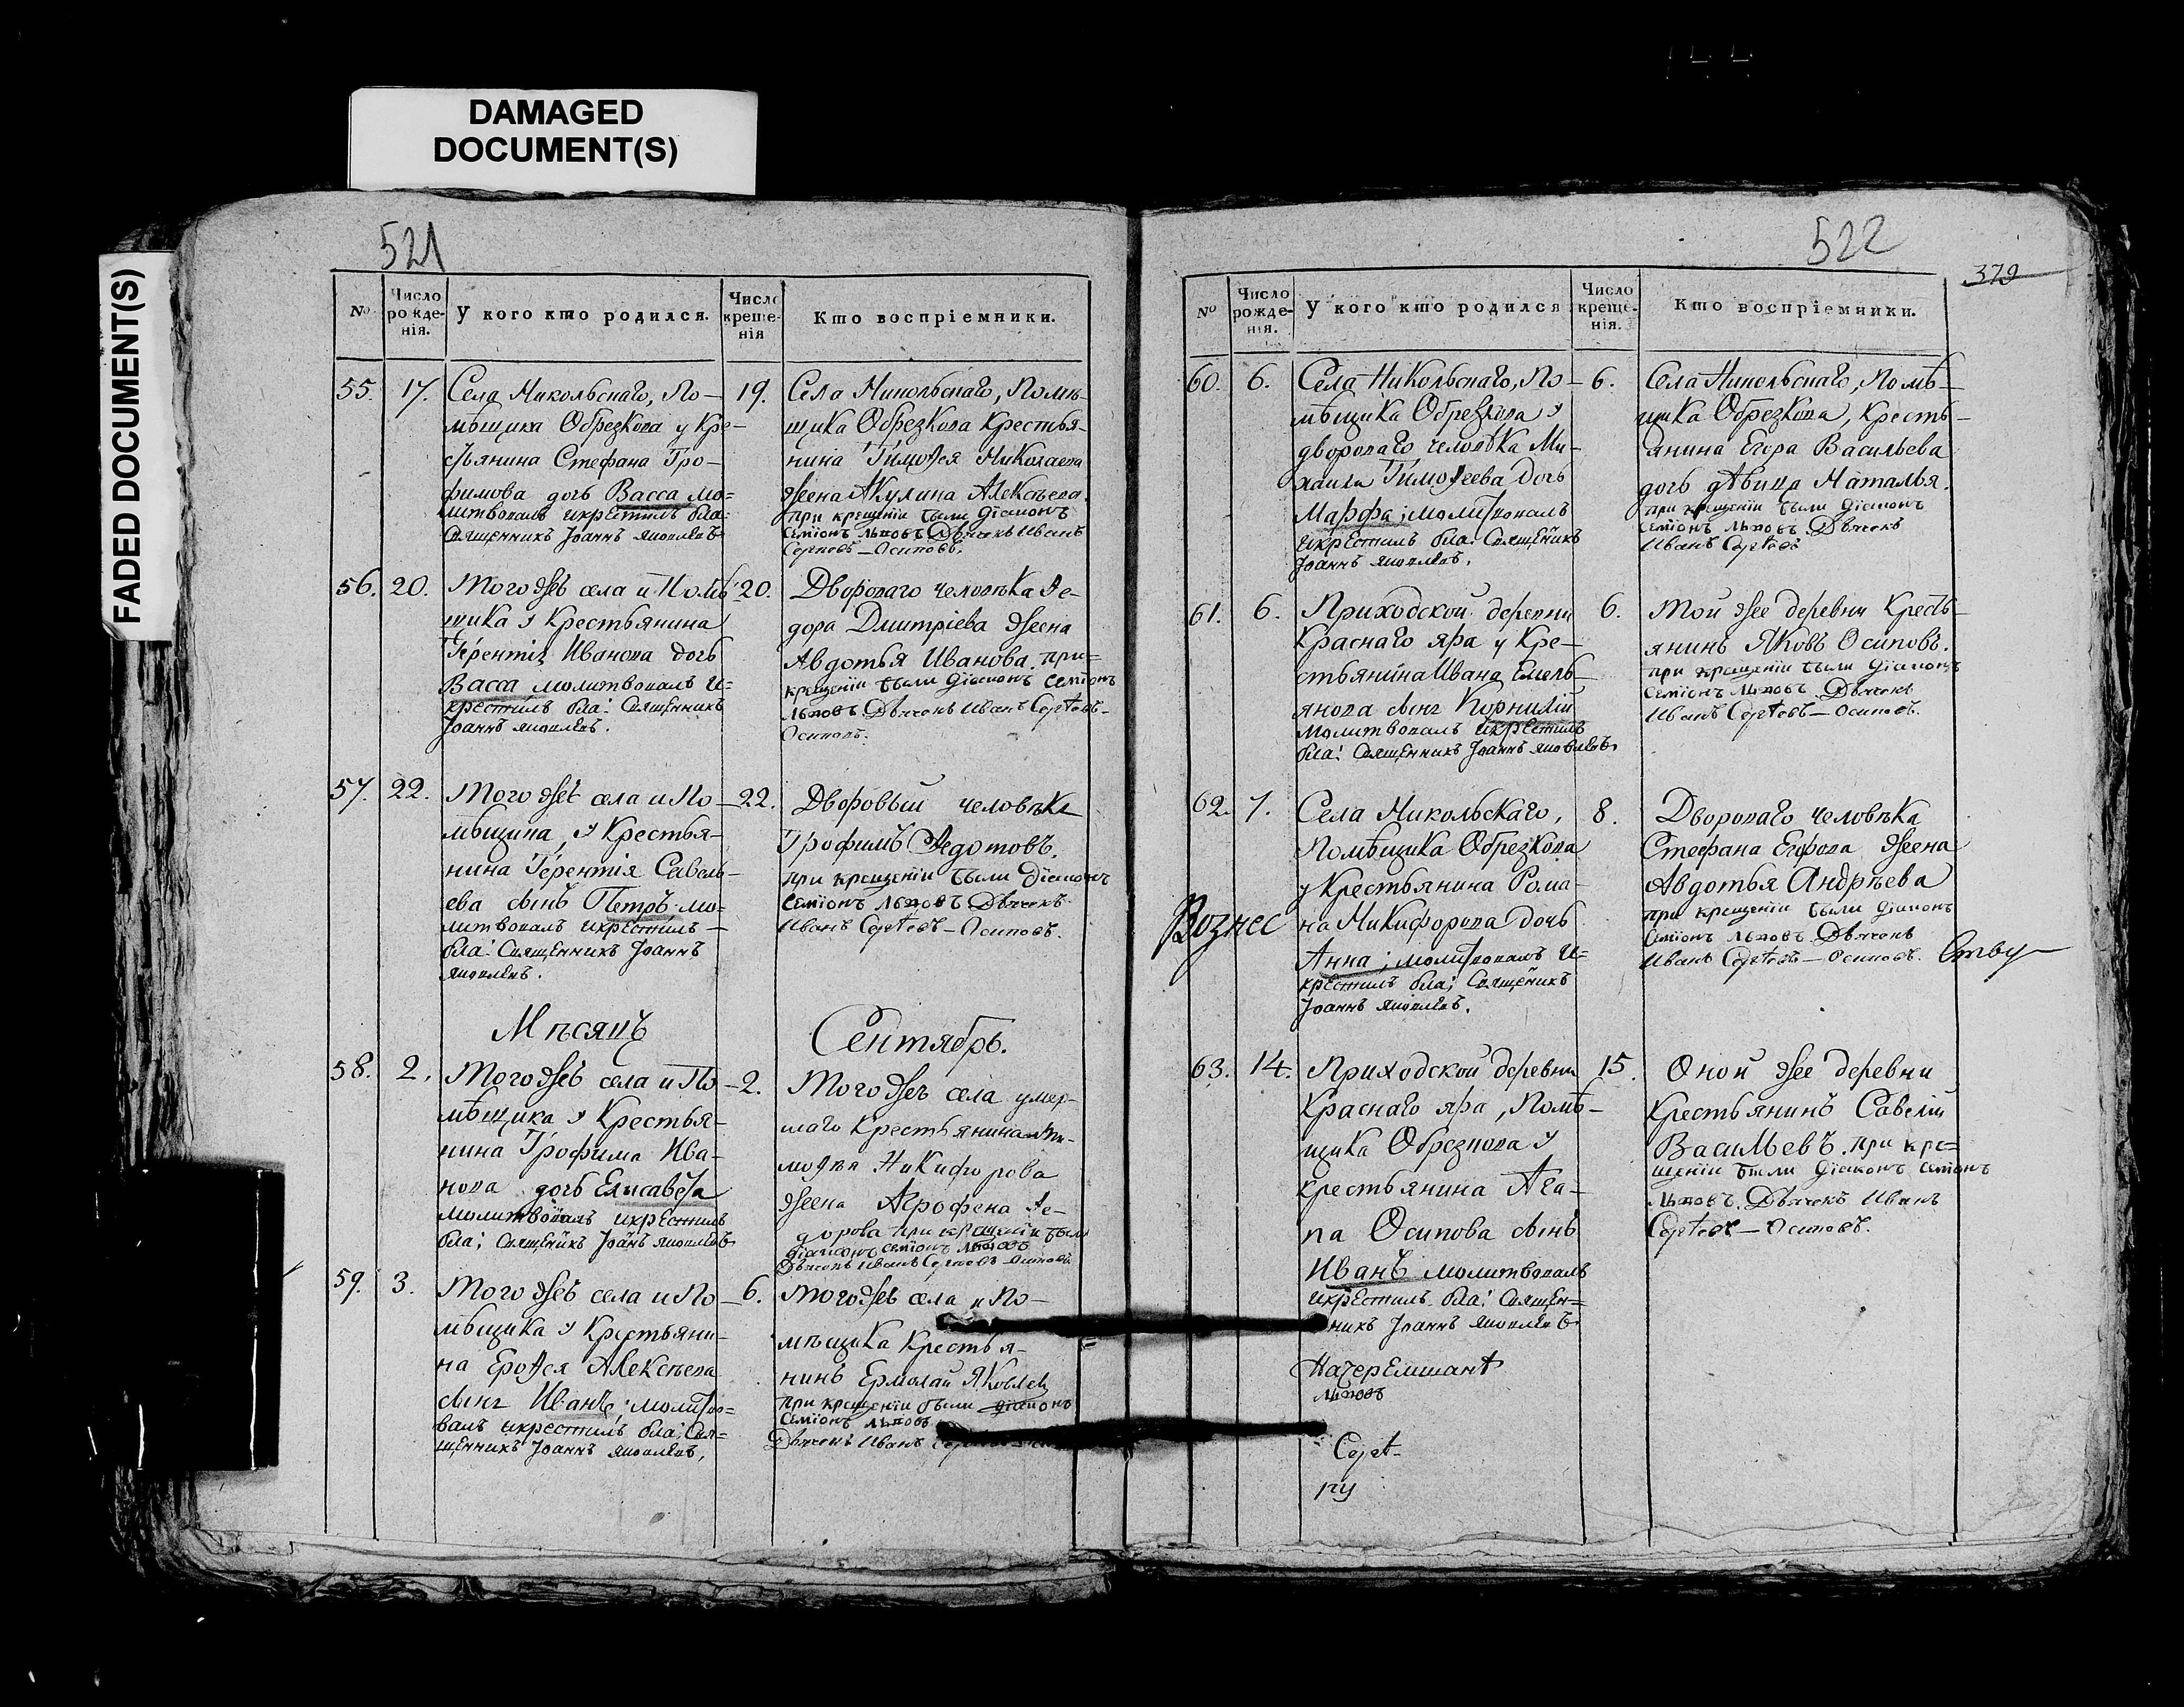 DAMAGED
DOCUMENT(S)
FADED DOCUMENT(S)
521
№
Число
рожде-
нія.
У кого кто родился.
Число
креще-
нія
Кто воспріемники.
55. 17.
Села Никольскаго, По-
мѣщика Обрезкова у Кре-
стьянина Стефана Тро-
фимова дочь Васса мо=
литвовалъ икрестилъ
Священникъ Іоаннъ Яковлевъ
19.
Села Никольскаго, Помѣ-
щика Обрезкова Крестья-
нина Тимоѳея Николаева
жена Акулина Алексѣева.
при крещеніи были діаконъ
Семіонъ Львовъ Дьячекъ Иванъ
Сергѣевъ — Осиповъ.
56. 20.
Того жъ села и Помѣ
щика у Крестьянина
Терентія Иванова дочь
Васса молитвовалъ и=
крестилъ Священникъ
Іоаннъ Яковлевъ.
20.
Двороваго человѣка Ѳе-
дора Дмитріева жена
Авдотья Иванова. при=
крещеніи были діаконъ Семіонъ
Львовъ Дьячекъ Иванъ Сергѣевъ-
Осиповъ.
57. 22.
Того жъ села и По-
мѣщика, у Крестья-
нина Терентія Савель-
ева сынъ Петръ мо=
литвовалъ икрестилъ
Священникъ Іоаннъ
Яковлевъ.
22.
Дворовый человѣкъ
Трофимъ Ѳедотовъ.
при крещеніи были діаконъ
Семіонъ Львовъ Дьячекъ
Иванъ Сергѣевъ — Осиповъ.
Мѣсяцъ
Сентябрь.
58. 2.
Того жъ села и По-
мѣщика у Крестья-
нина Трофима Ива-
нова дочь Елисавета
молитвовалъ икрестилъ
Священикъ Іоанъ Яковлевъ
2.
Того жъ села умер-
шаго Крестьянина Ти-
моѳѣя Никифорова
жена Агрофена Ѳе-
дорова при крещеніи были
діаконъ Семіонъ Львовъ
Дьячекъ Иванъ Сергѣевъ Осиповъ
59. 3.
Того жъ села и По-
мѣщика у Крестьяни-
на Ероѳея Алексѣева
сынъ Иванъ молитво=
валъ икрестилъ Свя=
щенникъ Іоаннъ Яковлевъ.
6.
Того жъ села и По-
мѣщика Крестья-
нинъ Ермолай Яковлев
при крещеніи были діаконъ
Семіонъ Львовъ
Дьячекъ Иванъ
522
379
№
Число
рожде-
нія.
У кого кто родился
Число
креще-
нія.
Кто воспріемники.
60. 6.
Села Никольскаго, По-
мѣщика Обрезкова у
двороваго человѣка Ми-
хаила Тимоѳеева дочь
Марфа; молитвовалъ
икрестилъ Священикъ
Іоаннъ Яковлевъ.
6.
Села Никольскаго, Помѣ-
щика Обрезкова, Кресть-
янина Егора Васильева
дочь дѣвица Наталья.
при крещеніи были діаконъ
Семіонъ Львовъ. Дьячекъ
Иванъ Сергѣевъ
61. 6.
Приходской деревни
Краснаго яра у Кре-
стьянина Ивана Емель-
янова сынъ Корнилій
молитвовалъ икрестилъ
Священникъ Іоаннъ Яковлевъ
6.
Той жее деревни Кресть-
янинъ Яковъ Осиповъ.
при крещеніи были діаконъ
Семіонъ Львовъ. Дьячекъ
Иванъ Сергѣевъ — Осиповъ.
62. 7.
Села Никольскаго,
Помѣщика Обрезкова
у Крестьянина Рома-
на Никифорова дочь
Анна; молитвовалъ и=
крестилъ Священикъ
Іоаннъ Яковлевъ.
8.
Двороваго человѣка
Стефана Егорова жеена
Авдотья Андрѣева
при крещеніи были діаконъ
Семіонъ Львовъ. Дьячекъ
Иванъ Сергѣевъ — Осиповъ.
Вознес
Ству
63. 14.
Приходской деревни
Краснаго яра, Помѣ-
щика Обрезкова у
крестьянина Ага-
па Осипова сынъ
Иванъ молитвовалъ
икрестилъ Священ=
никъ Іоаннъ Яковлевъ
15.
Оной жее деревни
Крестьянинъ Савелій
Васильевъ. при кре-
щеніи были діаконъ Семіонъ
Львовъ. Дьячекъ Иванъ
Сергѣевъ — Осиповъ.
Львовъ